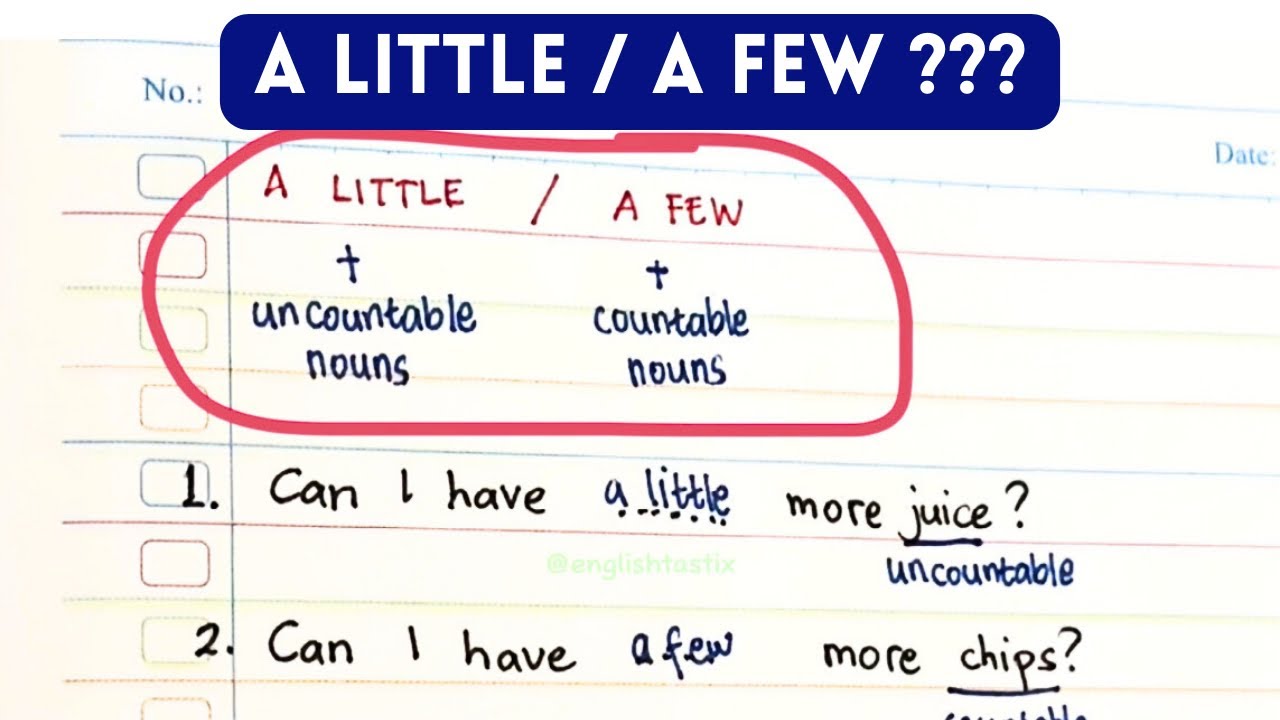 A LITTLE / A FEW ???
No.:
Date:
A LITTLE / A FEW
+ +
uncountable countable
nouns nouns
1. Can I have a little more juice?
@englishtastix
uncountable
2. Can I have a few more chips?
countable